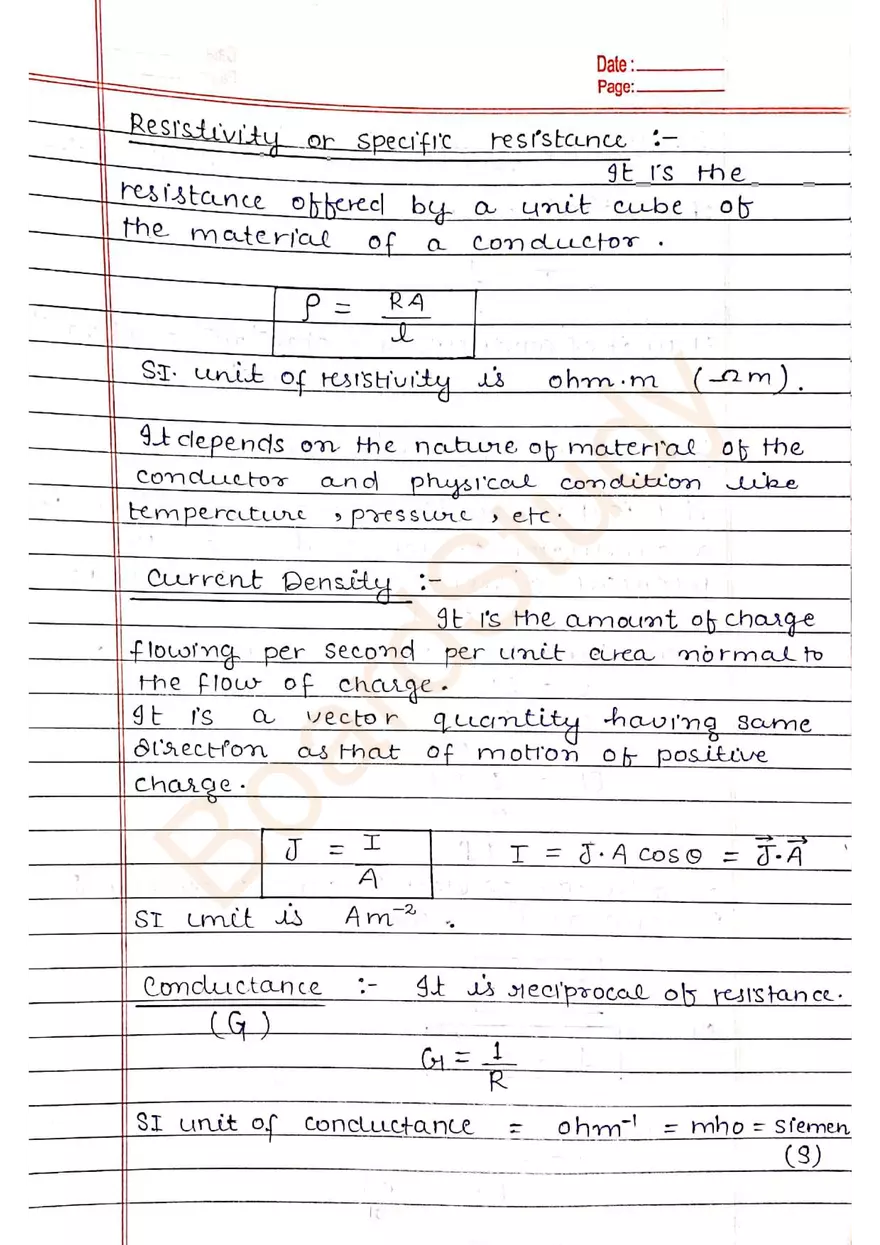 Date :
Page:
Resistivity or specific resistance :-
It is the
resistance offered by a unit cube of
the material of a conductor.
ρ = RA
l
SI. unit of resistivity is ohm.m (Ωm).
It depends on the nature of material of the
conductor and physical condition like
temperature , pressure , etc.
Current Density :-
It is the amount of charge
flowing per second per unit area normal to
the flow of charge.
It is a vector quantity having same
direction as that of motion of positive
charge.
J = I
A
I = J.A cosθ = J⃗.A⃗
SI unit is Am⁻² .
Conductance :- It is reciprocal of resistance.
(G)
G = 1
R
SI unit of conductance = ohm⁻¹ = mho = siemen
(S)
BoardStudy